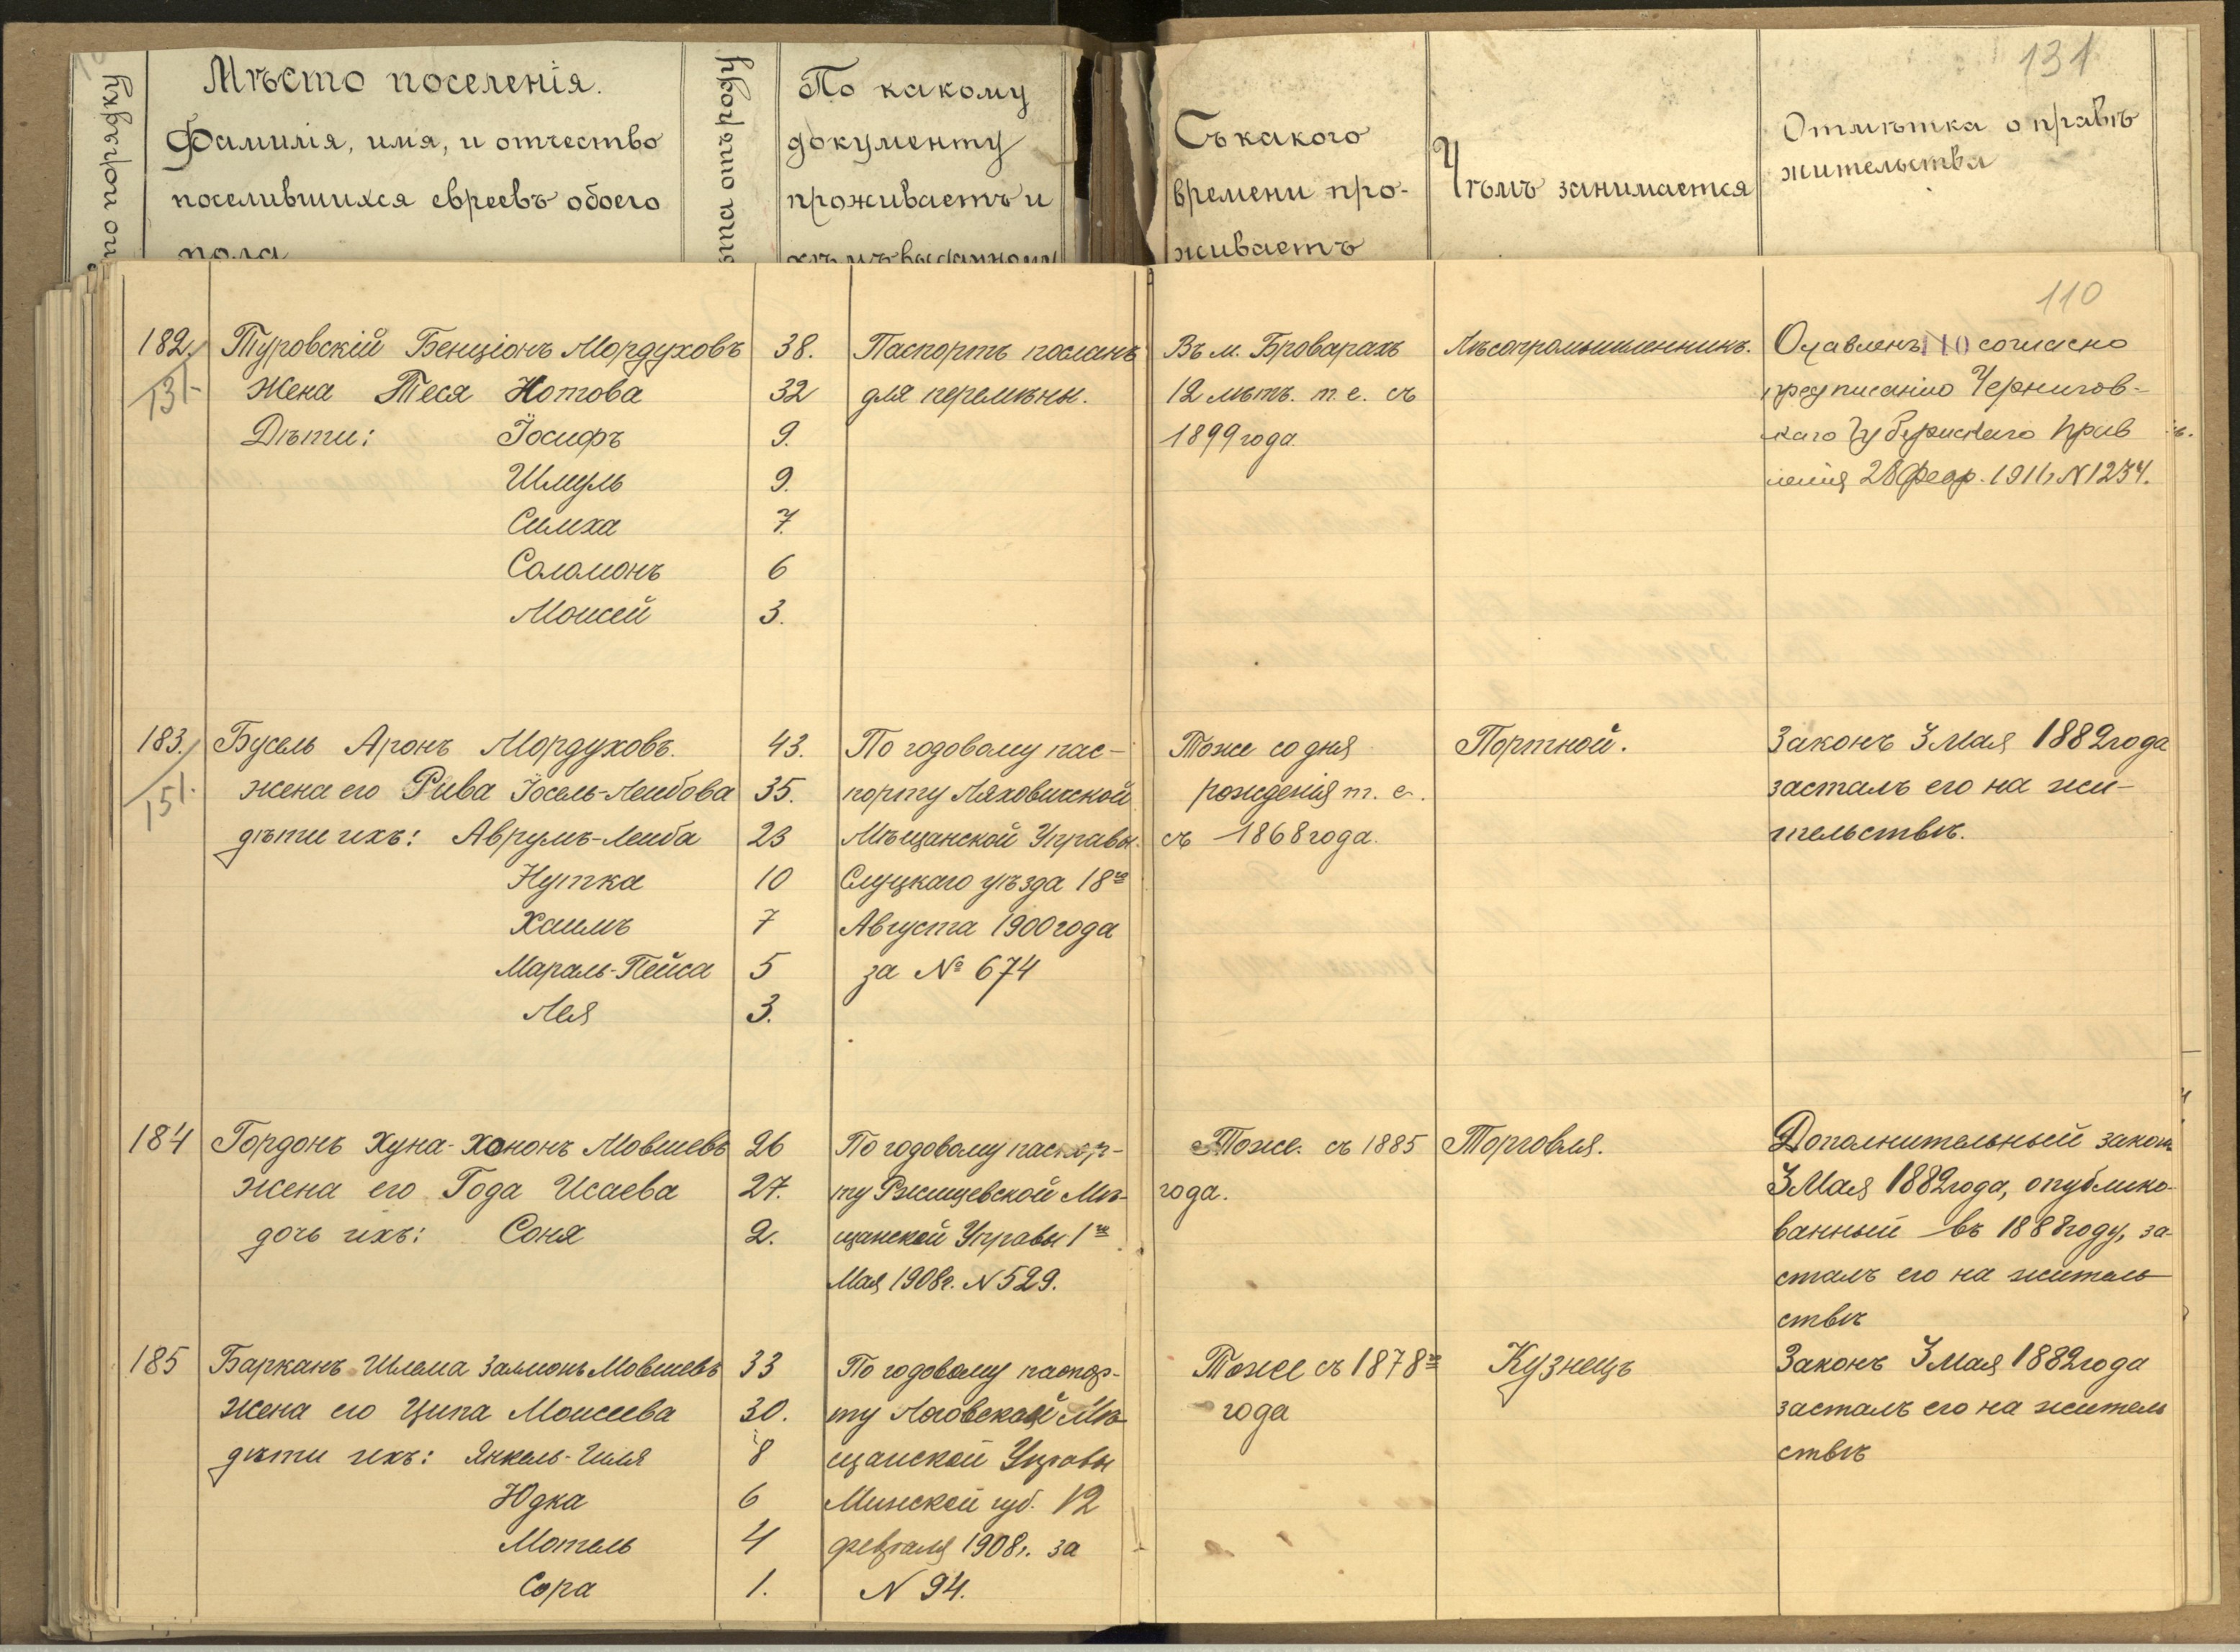 131
по порядку
Мѣсто поселенія.
Фамилія, имя, и отчество
поселившихся евреевъ обоего
пола
отъ роду
По какому
документу
проживаетъ и
кѣмъ выданному
Съ какого
времени про-
живаетъ
Чѣмъ занимается
Отмѣтка о правѣ
жительства
110
182.
131.
Туровскій Бенціонъ Мордуховъ
38.
Жена Теся Нотова
32
Дѣти: Іосифъ
9.
Шмуль
9.
Симха
7.
Соломонъ
6
Моисей
3.
Паспортъ посланъ
для перемѣны.
Въ м. Броварахъ
12 лѣтъ. т. е. съ
1899 года.
Лѣсопромышленникъ.
110 согласно
предписанію Чернигов-
скаго Губернскаго Прав
ленія 28 Февр. 1911 г. № 1234.
183.
151.
Бусель Аронъ Мордуховъ.
43.
жена его Рива Іосель-Лейбова
35.
дѣти ихъ: Аврумъ-Лейба
23
Нутка
10
Хаимъ
7
Мараль-Пейса
5
Лея
3.
По годовому пас-
порту Ляховичской
Мѣщанской Управы.
Слуцкаго уѣзда 18го
Августа 1900 года
за № 674
Тоже со дня
рожденія т. е.
съ 1868 года.
Портной.
Законъ 3 Мая 1882 года
засталъ его на жи-
тельствѣ.
184
Гордонъ Хуна-Хононъ Мовшевъ
26
жена его Года Исаева
27.
дочь ихъ: Соня
2.
По годовому паспор-
ту Ржищевской Мѣ-
щанской Управы 1го
Мая 1908 г. № 529.
Тоже. съ 1885
года.
Торговля.
Дополнительный законъ
3 Мая 1882 года, опублико-
ванный въ 1888 году, за-
сталъ его на житель
ствѣ
185
Барканъ Шлема Залмонъ Мовшевъ
33
жена его Ципа Моисеева
30.
дѣти ихъ: Янкель-Гиля
8
Юдка
6
Мотель
4
Сора
1.
По годовому паспор-
ту Логовской Мѣ-
щанской Управы
Минской губ. 12
февраля 1908 г. за
№ 94.
Тоже съ 1878го
года
Кузнецъ
Законъ 3 Мая 1882 года
засталъ его на житель
ствѣ